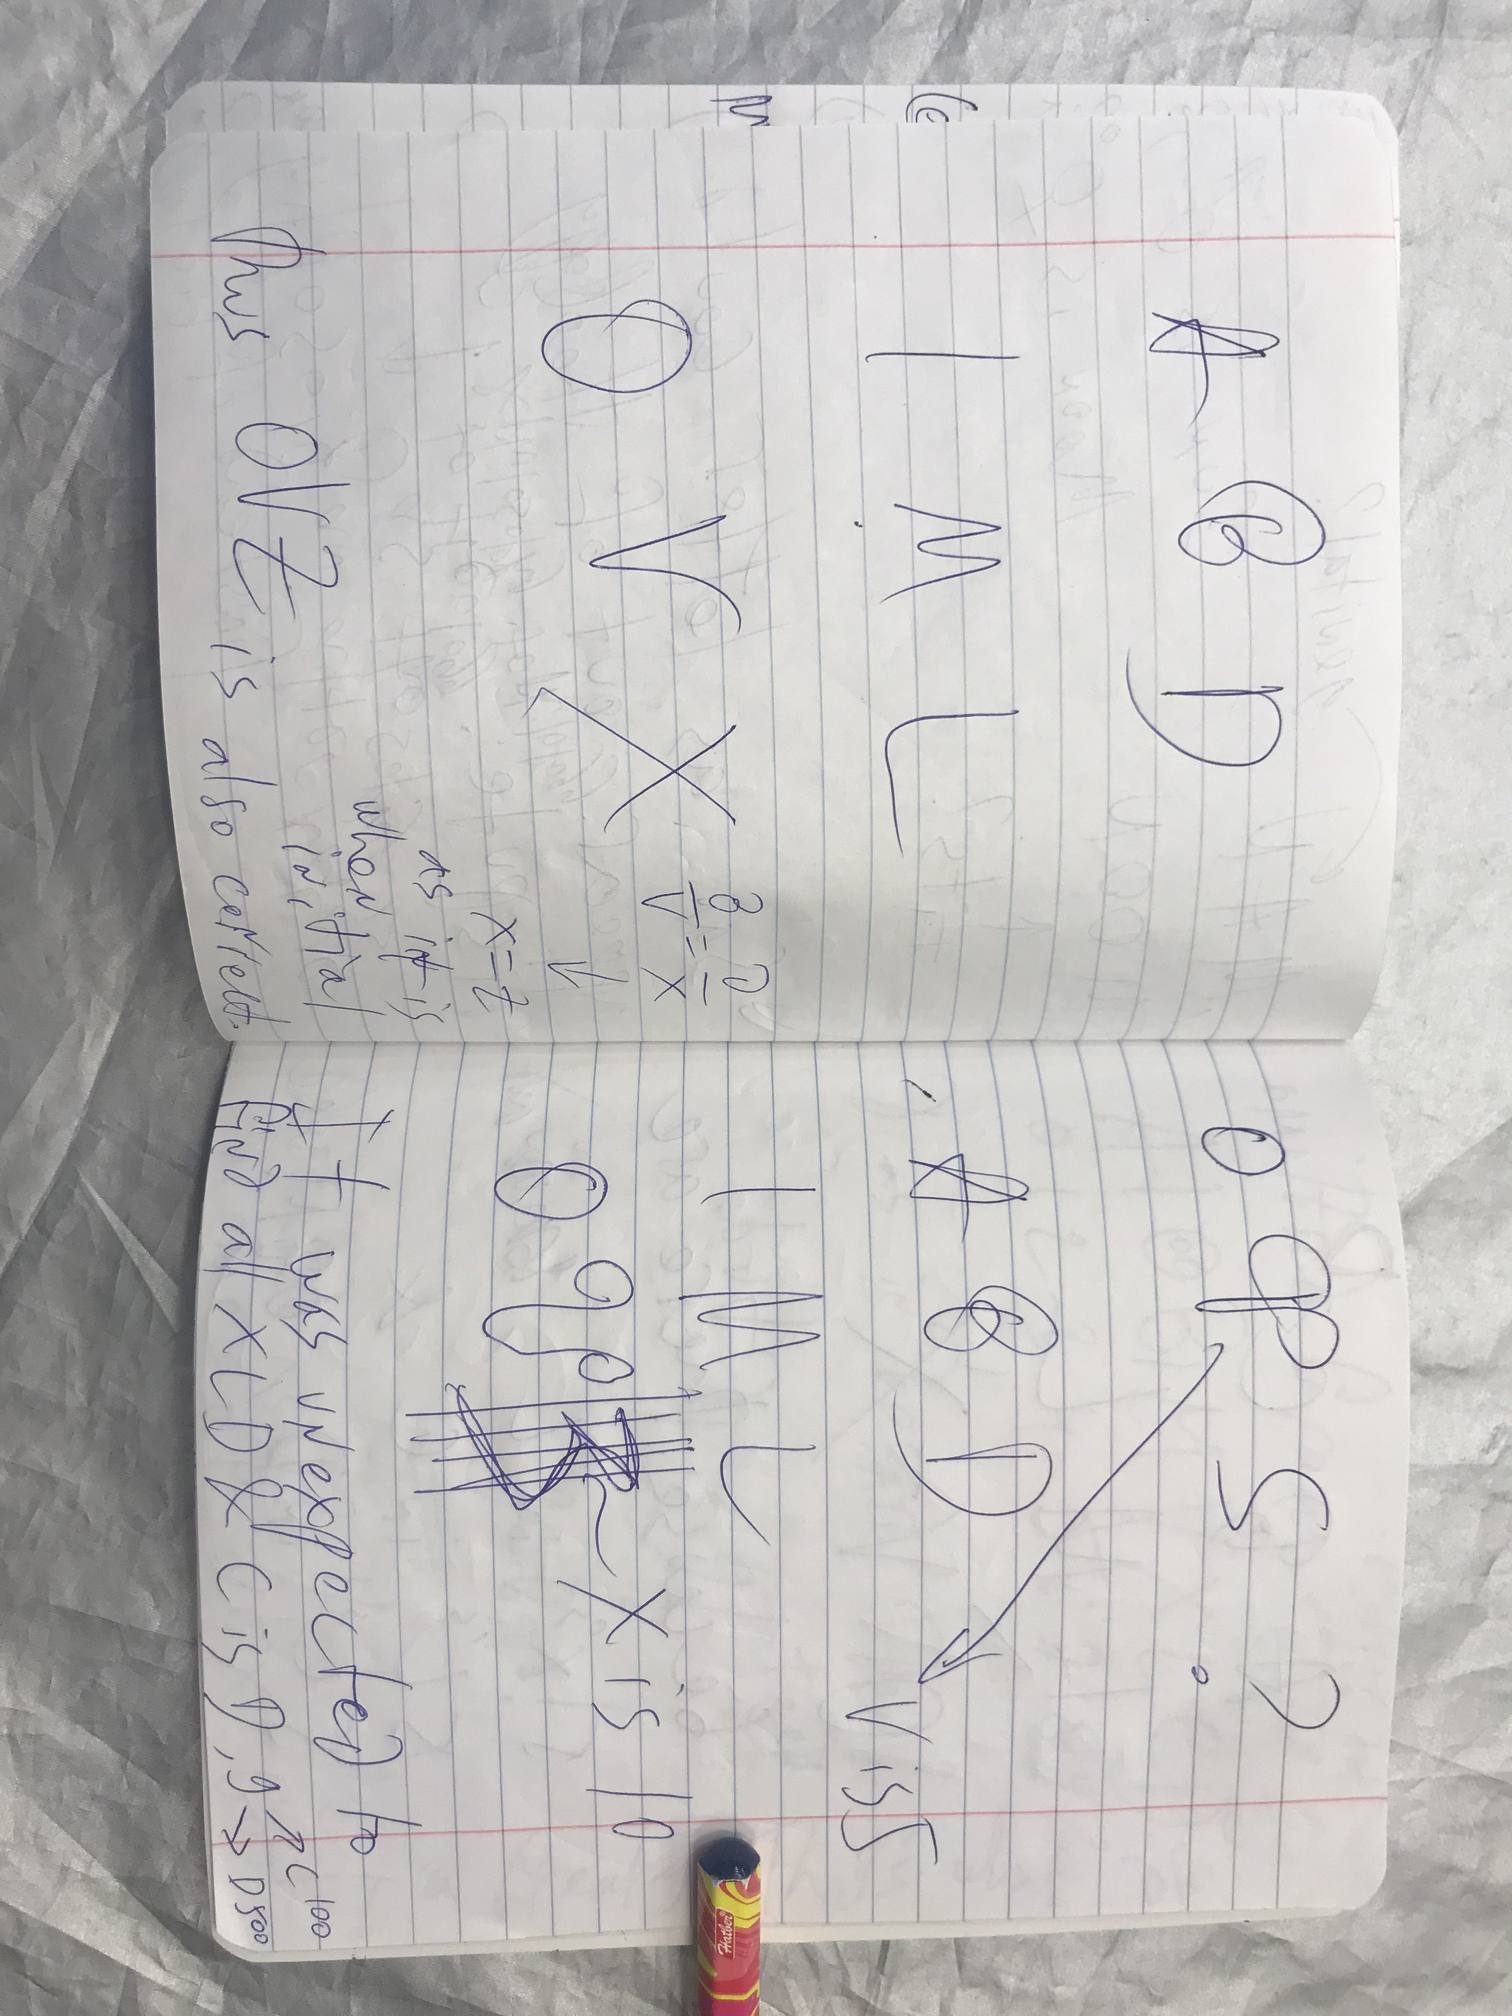 A B D
I M L
O V X
B = D
V = X
↑
x=z
as it is
when
initial
Thus OVZ is also certeld.
OOPS?
A B D
V is 5
I M L
X is 10
It was unexpected to
find all XLD & C is D, 9
↗ C 100
→ D 500
Hatber